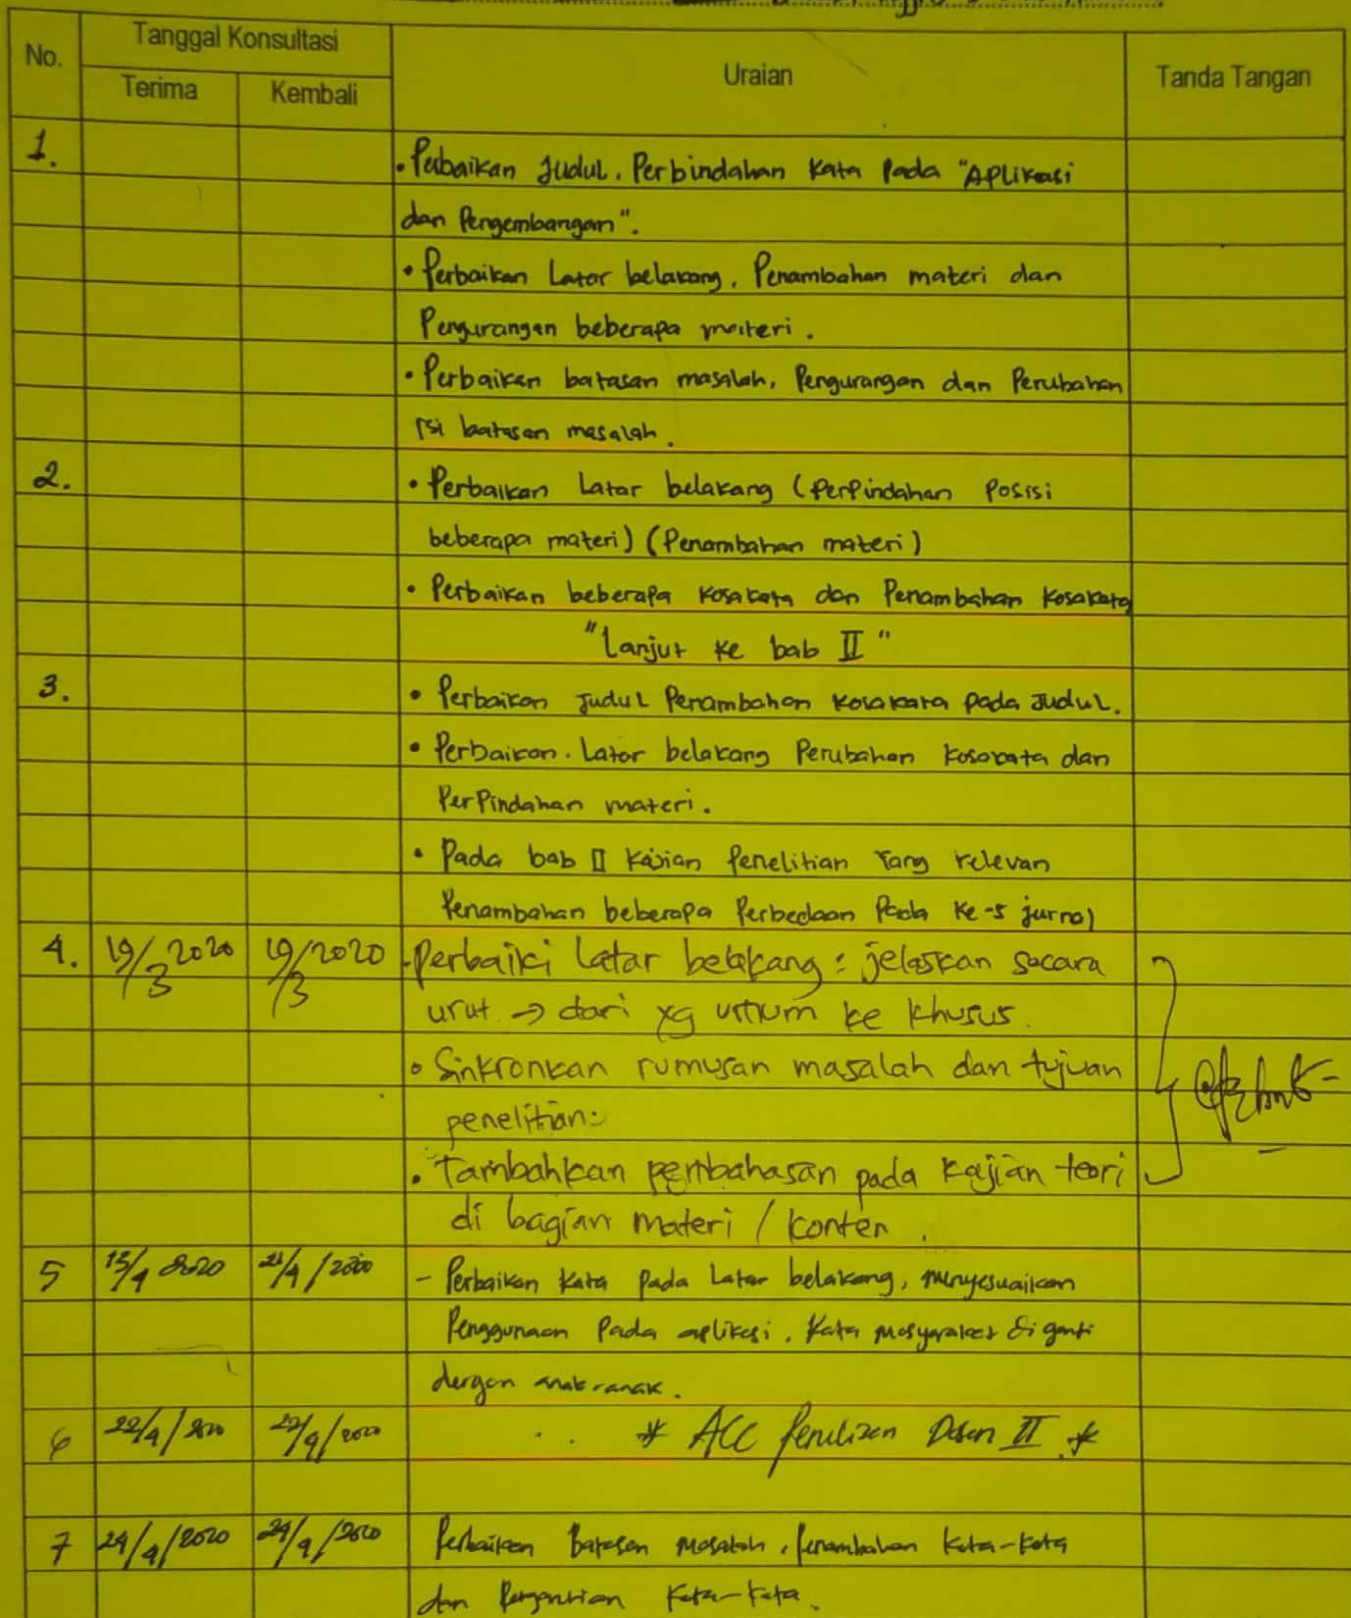 No.
Tanggal Konsultasi
Terima
Kembali
Uraian
Tanda Tangan
1.
• Perbaikan Judul. Perbindahan Kata Pada "Aplikasi
dan Pengembangan".
• Perbaikan Lator belakang, Penambahan materi dan
Pengurangan beberapa materi.
• Perbaikan batasan masalah, Pengurangan dan Perubahan
isi batasan masalah.
2.
• Perbaikan Latar belakang (Perpindahan Posisi
beberapa materi) (Penambahan materi)
• Perbaikan beberapa kosakata dan Penambahan kosakata
"Lanjut ke bab II"
3.
• Perbaikan Judul Penambahan kosakata pada Judul.
• Perbaikan. Lator belakang Perubahan kosakata dan
Perpindahan materi.
• Pada bab II Kajian Penelitian Yang relevan
Penambahan beberapa Perbedaan Pada Ke-5 jurnal
4. 19/3 2020 19/3 2020 - Perbaiki latar belakang : jelaskan secara
urut → dari yg umum ke khusus.
• Sinkronkan rumusan masalah dan tujuan
penelitian.
• Tambahkan pembahasan pada kajian teori
di bagian materi / konten.
5 2020 - Perbaikan Kata Pada Latar belakang, menyesuaikan
Penggunaan Pada aplikasi. Kata masyarakat di ganti
dengan anak-anak.
6 22/4/2020 22/4/2020 * ACC Dosen II *
7 24/4/2020 24/4/2020 Perbaikan Batasan Masalah, Penambahan Kata-Kata
dan Pergantian Kata-Kata.